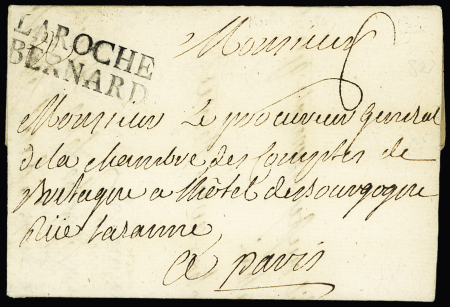 LAROCHE
BERNARD
Monsieur
Monsieur Le procureur general
de la chambre des Comptes de
Bretagne a l'hôtel de Bourgogne
Rüe taranne
a paris